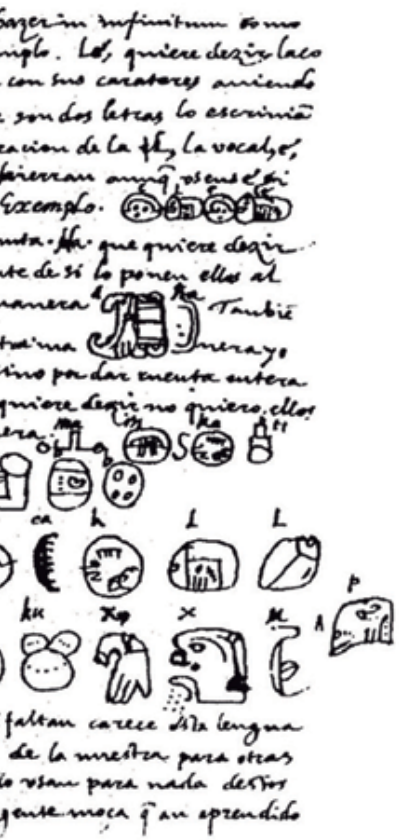 hazer in infinitum como
mplo. Lé, quiere dezir laço
con sus carateres aviendo
e son dos letras lo escriviã
racion de la , la vocal, é,
hierran aunq̃ usense si
Exemplo. e L e Lé
que quiere dezir
nte de si lo ponen ellos al
manera a ha Tambiẽ
nera y o
sino por dar cuenta entera
quiere dezir no quiero, ellos
era: ma i n ka ti
ca k l L
ku x p
faltan carece esta lengua
de la nuestra para otras
lo usan para nada destos
gente moça q̃ an aprendido